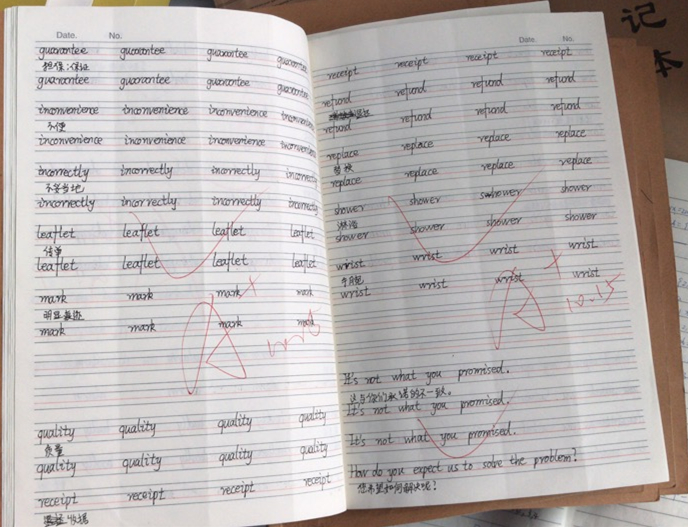 Date. No.
guarantee guarantee guarantee guarantee
担保;保证
guarantee guarantee guarantee guarantee
inconvenience inconvenience inconvenience inconvenience
不便
inconvenience inconvenience inconvenience inconvenience
incorrectly incorrectly incorrectly incorrectly
不妥当地
incorrectly incorrectly incorrectly incorrectly
leaflet leaflet leaflet leaflet
传单
leaflet leaflet leaflet leaflet
mark mark mark mark
明显痕迹
mark mark mark mark
A+
quality quality quality quality
质量
quality quality quality quality
receipt receipt receipt receipt
收据
Date. No.
receipt receipt receipt receipt
refund refund refund refund
退款
refund refund refund refund
replace replace replace replace
替换
replace replace replace replace
shower shower shower shower
淋浴
shower shower shower shower
wrist wrist wrist wrist
手腕
wrist wrist wrist wrist
A+
10.15
It's not what you promised.
这与你们承诺的不一致。
It's not what you promised.
It's not what you promised.
How do you expect us to solve the problem?
您希望如何解决呢?
记
本